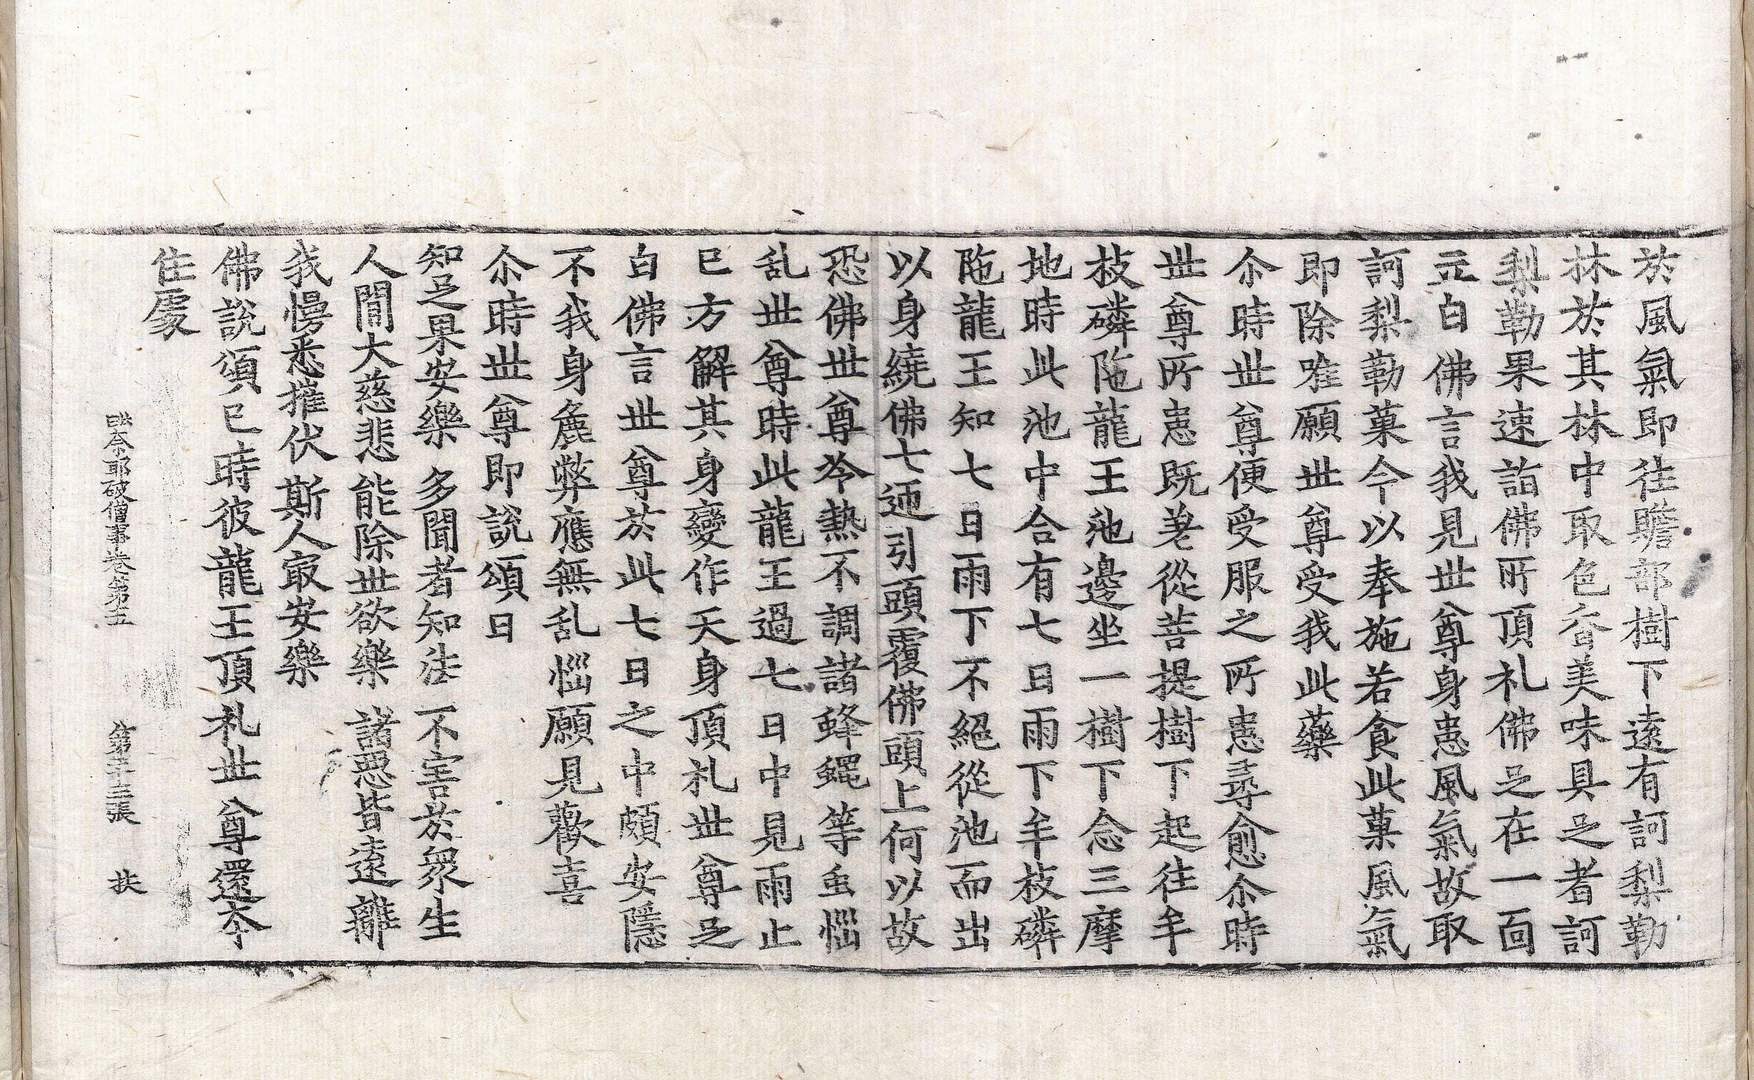 於風氣即往贍部樹下遠有訶梨勒
林於其林中取色香美味具足者訶
梨勒果速詣佛所頂礼佛足在一面
立白佛言我見世尊身患風氣故取
訶梨勒菓今以奉施若食此菓風氣
即除唯願世尊受我此藥
尒時世尊便受服之所患尋愈尒時
世尊所患既差從菩提樹下起往牟
枝磷陁龍王池邊坐一樹下念三摩
地時此池中合有七日雨下牟枝磷
陁龍王知七日雨下不絕從池而出
以身繞佛七迊引頭覆佛頭上何以故
恐佛世尊冷熱不調諸蜂蠅等䖝惱
乱世尊時此龍王過七日中見雨止
已方解其身變作天身頂礼世尊足
白佛言世尊於此七日之中頗安隱
不我身麁弊應無乱惱願見歡喜
尒時世尊即說頌曰
知足果安樂 多聞者知法 不害於衆生
人閒大慈悲能除世欲樂 諸惡皆遠離
我慢悉摧伏 斯人㝡安樂
佛說頌已時彼龍王頂礼世尊還夲
住處
毗奈耶破僧事卷第五 第十三張 扶